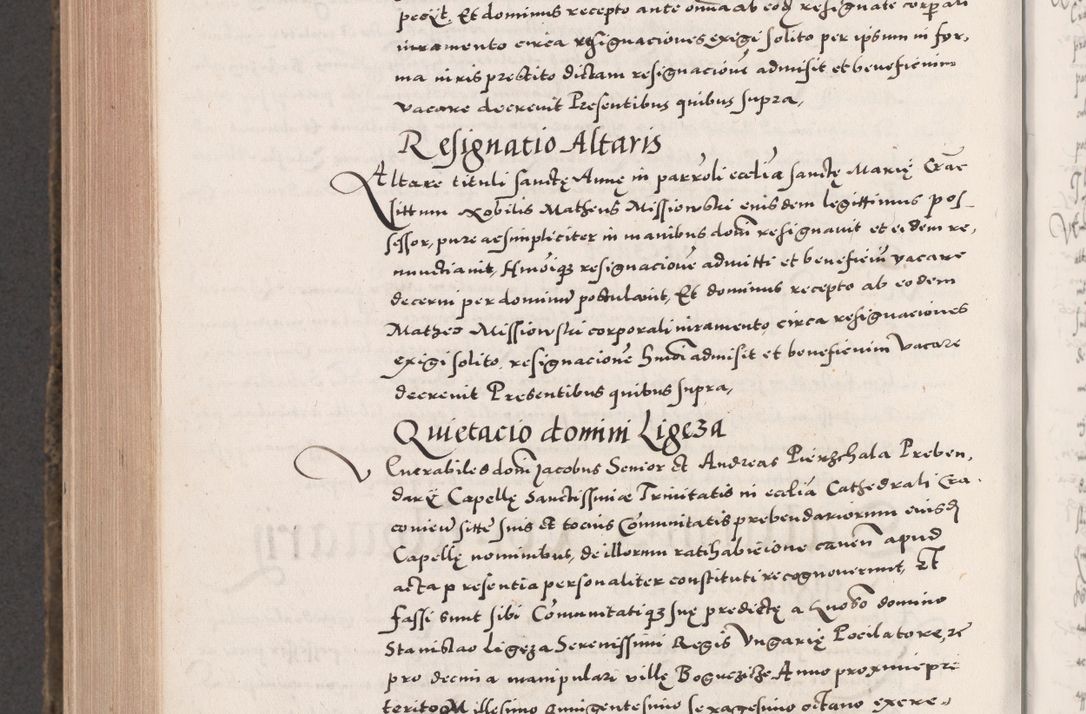 pegÿt, Et dominus recepto ante omīa ab eodȝ resignate corp̄ali
iuramento circa resignaciones exigi solito per ipsum in for,
ma iuris prestito dictam resignacionē admisit et beneficium
vacare decrevit Presentibus quibus supra,
Resignatio Altaris
Altare tituli sanctę Annę in parr̄oli eccl̄ia sanctę Marię Crac̄
sittum Nobilis Matheus Missiowski eiusdem legittimus pos_
sessor, pure ac simpliciter in manibus dom̄ resignavit et eidem re,
nunctiavit, Hmōiqȝ resignacionē admitti et beneficiū vacare
decerni per dominū postulavit, Et dominus recepto ab eodem
Matheo Missiowski corporali iuramento circa resignaciones
exigi solito, resignacionē hmōi admisit et beneficium vacare
decrevit Presentibus quibus supra,
Quietacio domini Ligęza
Venerabiles dom̄ Jacobus Senior et Andreas Pierzchala Preben,
darÿ Capellę Sanctissimæ Trinitatis in eccl̄ia Cathedrali Cra.
covien̄ sittę suis et tocius Cōmunitatis prebendariorum eiusdȝ
Capellę nominibus, de illorum ratihabicione caven̄ apud
acta presentia personaliter constituti recognoverunt, Et
fassi sunt sibi Cōmunitatiqȝ suę predictę a Gnōso domino
Stanislao Ligęza Serenissimi Regis Ungarię Pocilatore, re
pro decima manipulari villę Boguczicze Anno proxime pre
terito Millesimo Quingentesimo sexagesimo octavo exere,